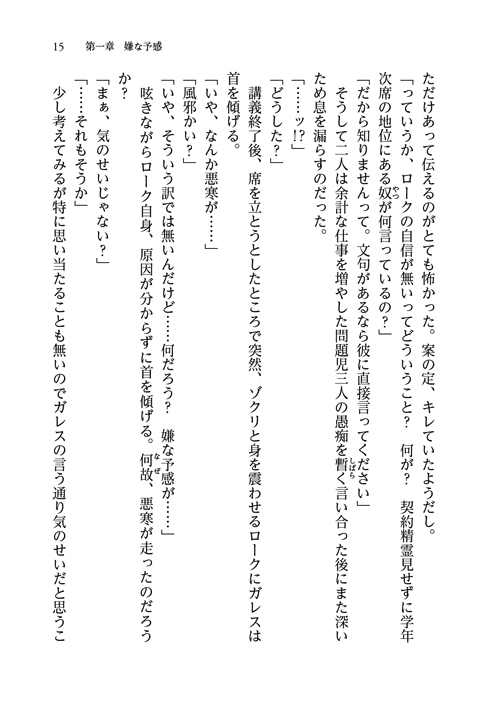 15　第一章　嫌な予感
ただけあって伝えるのがとても怖かった。案の定、キレていたようだし。
「っていうか、ロークの自信が無いってどういうこと？　何が？　契約精霊見せずに学年
次席の地位にある奴が何言っているの？」
「だから知りませんって。文句があるなら彼に直接言ってください」
そうして二人は余計な仕事を増やした問題児三人の愚痴を暫く言い合った後にまた深い
ため息を漏らすのだった。
「……ッ!?」
「どうした？」
講義終了後、席を立とうとしたところで突然、ゾクリと身を震わせるロークにガレスは
首を傾げる。
「いや、なんか悪寒が……」
「風邪かい？」
「いや、そういう訳では無いんだけど……何だろう？　嫌な予感が……」
呟きながらローク自身、原因が分からずに首を傾げる。何故、悪寒が走ったのだろう
か？
「まぁ、気のせいじゃない？」
「……それもそうか」
少し考えてみるが特に思い当たることも無いのでガレスの言う通り気のせいだと思うこ